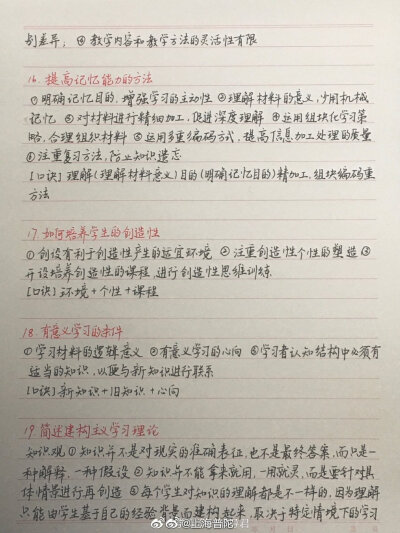 别差异；④教学内容和教学方法的灵活性有限
16. 提高记忆能力的方法
①明确记忆目的，增强学习的主动性 ②理解材料的意义，少用机械
记忆 ③对材料进行精细加工，促进深度理解 ④运用组块化学习策
略，合理组织材料 ⑤运用多重编码方式，提高信息加工处理的质量
⑥注重复习方法，防止知识遗忘
[口诀] 理解(理解材料意义)目的(明确记忆目的)精加工，组块编码重
方法
17. 如何培养学生的创造性
①创设有利于创造性产生的适宜环境 ②注重创造性个性的塑造 ③
开设培养创造性的课程，进行创造性思维训练
[口诀] 环境+个性+课程
18. 有意义学习的条件
①学习材料的逻辑意义 ②有意义学习的心向 ③学习者认知结构中必须有
适当的知识，以便与新知识进行联系
[口诀] 新知识+旧知识+心向
19. 简述建构主义学习理论
知识观 ①知识并不是对现实的准确表征，也不是最终答案，而只是一
种解释，一种假设 ②知识并不能拿来就用，一用就灵，而是要针对具
体情景进行再创造 ③每个学生对知识的理解都是不一样的，因为理解
只能由学生基于自己的经验背景而建构起来，取决于特定情境下的学习
@上海普陀